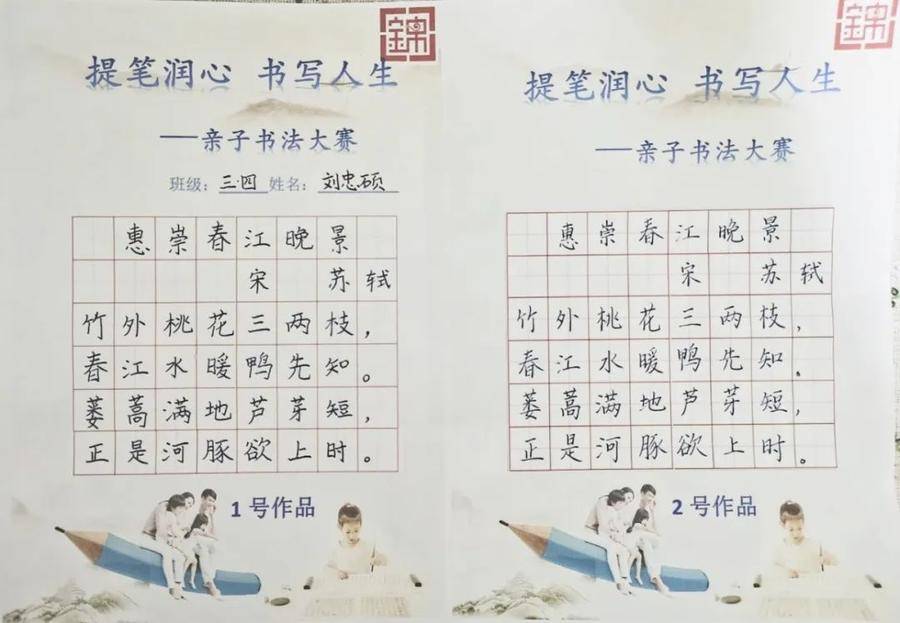 錦
提笔润心 书写人生
——亲子书法大赛
班级：三.四 姓名：刘忠硕
惠崇春江晚景
宋 苏轼
竹外桃花三两枝，
春江水暖鸭先知。
蒌蒿满地芦芽短，
正是河豚欲上时。
1号作品
錦
提笔润心 书写人生
——亲子书法大赛
惠崇春江晚景
宋 苏轼
竹外桃花三两枝，
春江水暖鸭先知。
蒌蒿满地芦芽短，
正是河豚欲上时。
2号作品